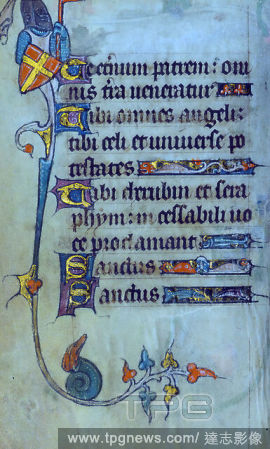 Te eternum patrem: om
nis tra veneratur
Tibi omnes angeli:
tibi celi et universe po
testates
Tibi cherubin et sera
phym: incessabili vo
ce proclamant
Sanctus
Sanctus
TPG
www.tpgnews.com/達志影像